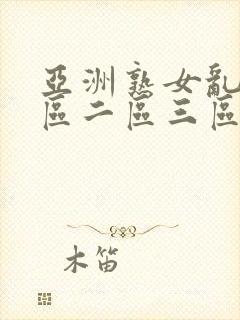 亞洲熟女亂
區二區三區
木笛